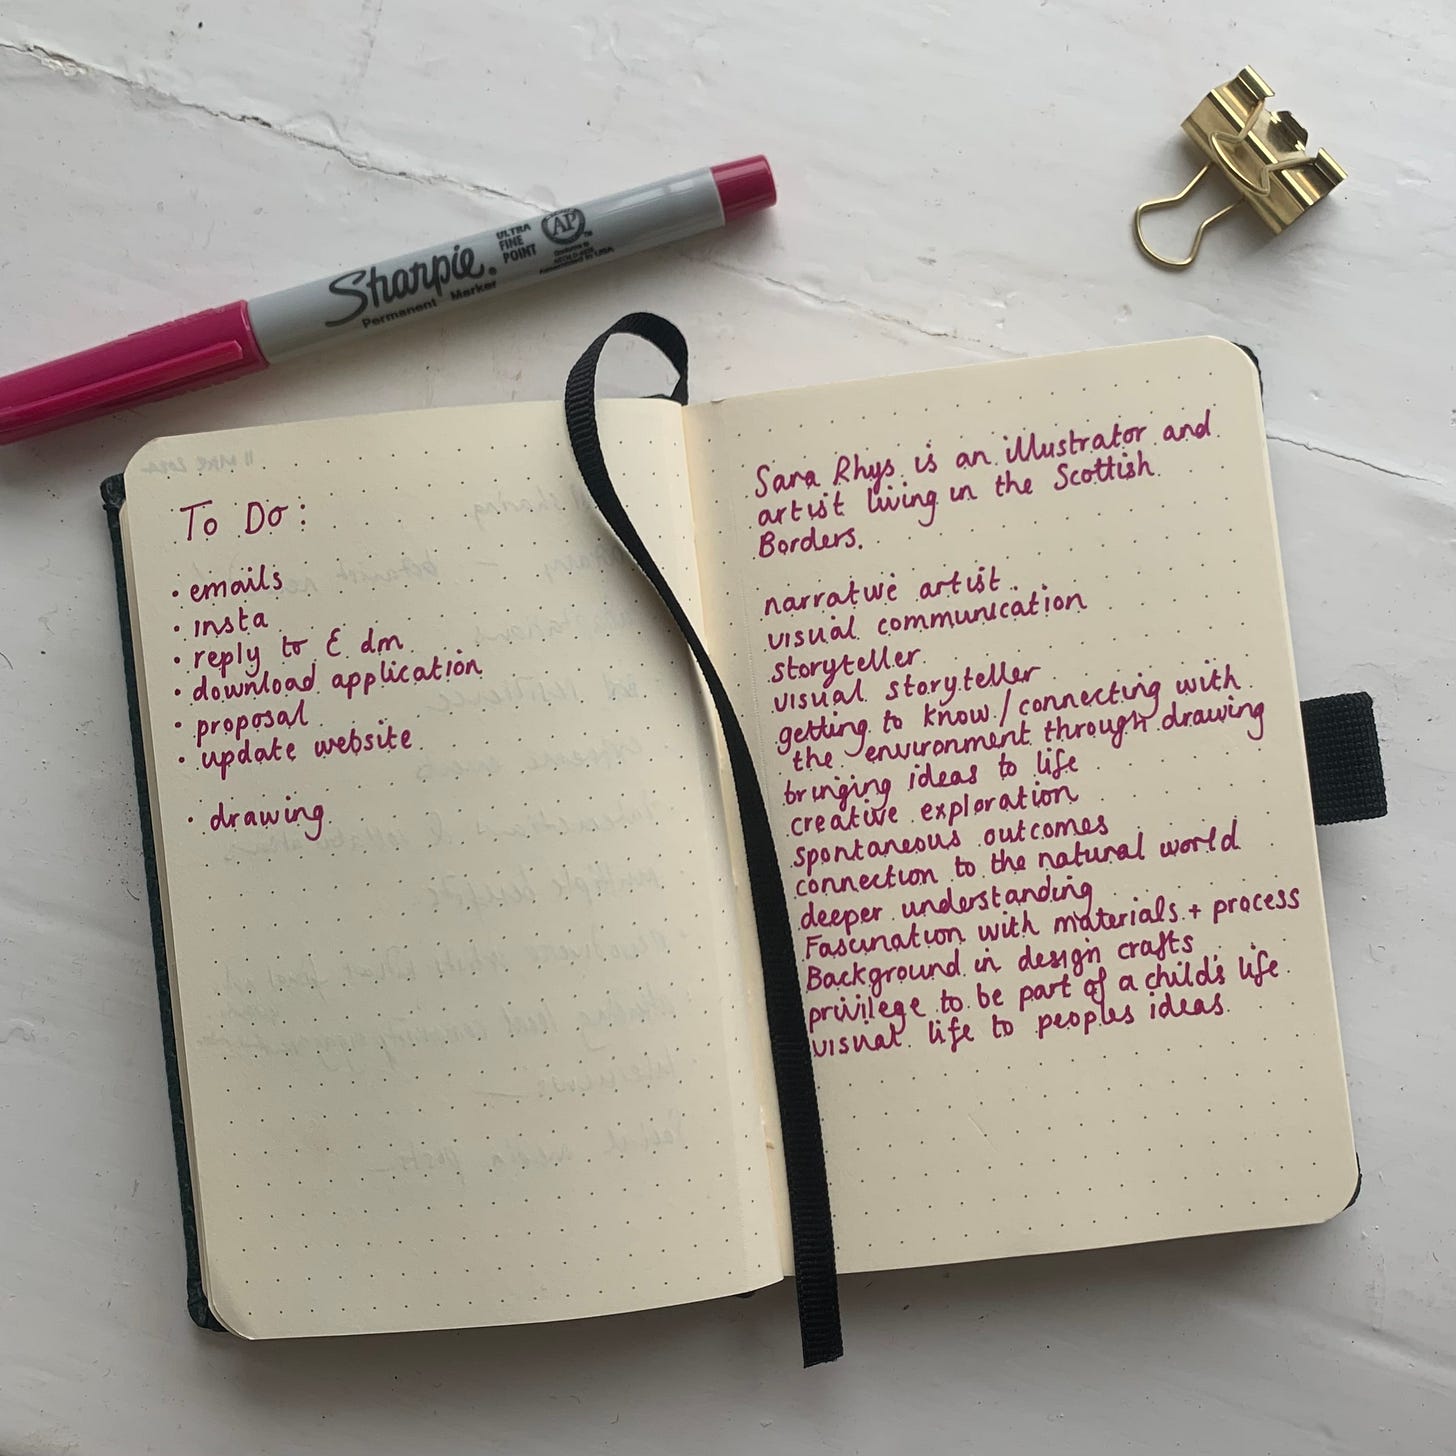 Sharpie.
Permanent Marker
ULTRA
FINE
POINT
AP
To Do:
· emails
· insta
· reply to E dm
· download application
· proposal
· update website
· drawing
Sara Rhys is an illustrator and
artist living in the Scottish
Borders.
narrative artist
visual communication
storyteller
visual storyteller
getting to know/connecting with
the environment through drawing
bringing ideas to life
creative exploration
spontaneous outcomes
connection to the natural world
deeper understanding
Fascination with materials + process
Background in design crafts
privilege to be part of a child's life
visual life to peoples ideas